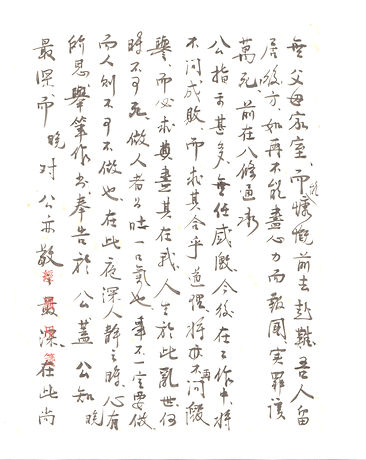 無父母家室、而能慷慨前去赴難、吾人留
居後方、如再不能盡心力而報國、實罪該
萬死、前在八條通、承
公指示甚多、無任感激、今後在工作中、將
不問成敗、而求其合乎道理、將亦不再問毀
譽、而必求盡其在我、人生於此亂世、何
時不可死、做人者只吐一口氣也、事不一定要做
而人則不可不做也、在此夜深人靜之時、心有
所思、舉筆作書、奉告於 公、蓋 公知晚
最深、而晚對 公亦敬最深、在此尚